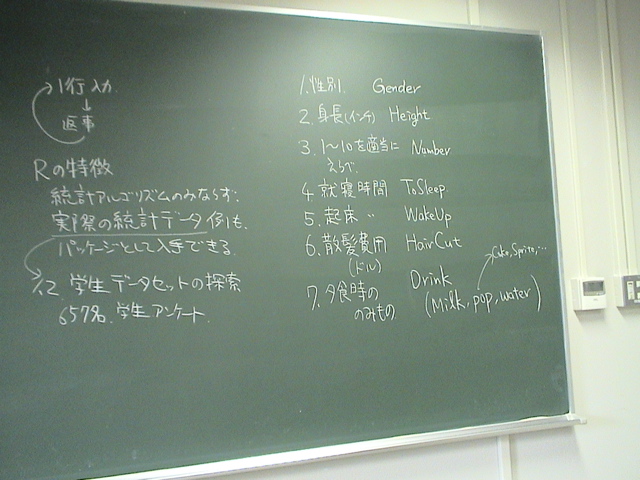 1行入力
↓
返事
Rの特徴
統計アルゴリズムのみならず.
実際の統計データ例も.
パッケージとして入手できる.
1.2. 学生データセットの探索
657名. 学生アンケート.
1. 性別. Gender
2. 身長(インチ) Height
3. 1〜10を適当に Number
えらべ.
4. 就寝時間 ToSleep
5. 起床 〃 WakeUp
6. 散髪費用 HairCut
(ドル)
7. 夕食時の Drink
のみもの (Milk, pop, water)
Coke, Sprite, …